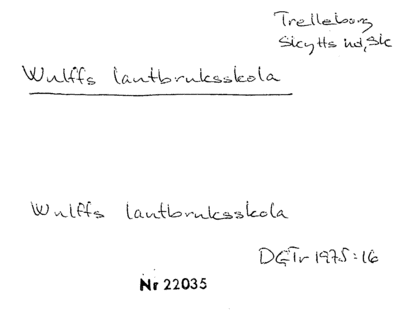 Trelleborg
Skytts hd, Sk
Wulffs lantbruksskola
Wulffs lantbruksskola
DGTr 1975:16
Nr 22035